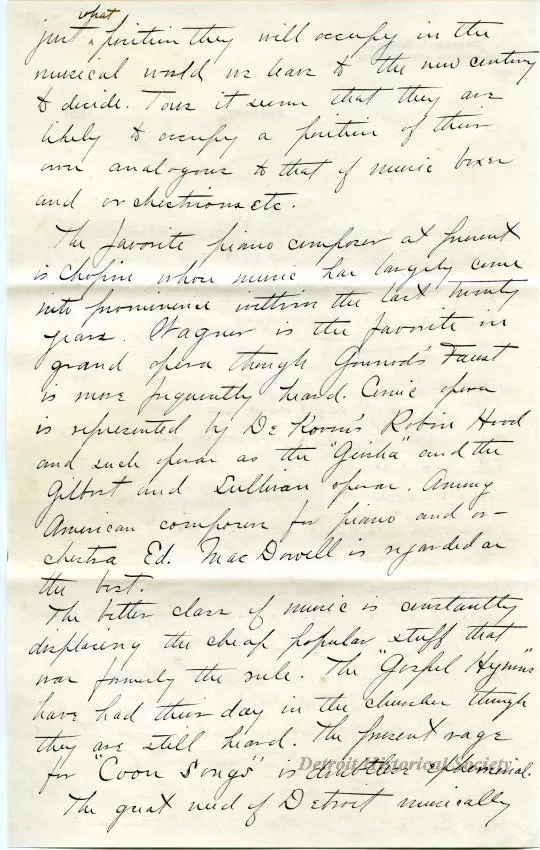 what
just ^ position they will occupy in the
musical world we leave to the new century
to decide. To us it seems that they are
likely to occupy a position of their
own analogous to that of music boxes
and orchestrions etc.
The favorite piano composer at present
is Chopin whose music has largely come
into prominence within the last twenty
years. Wagner is the favorite in
grand opera though Gounod's Faust
is more frequently heard. Comic opera
is represented by De Koven's Robin Hood
and such operas as the "Geisha" and the
Gilbert and Sullivan operas. Among
American composers for piano and or-
chestra Ed. MacDowell is regarded as
the best.
The better class of music is constantly
displacing the cheap popular stuff that
was formerly the rule. The "Gospel Hymns"
have had their day in the churches though
they are still heard. The present rage
for "Coon Songs" is doubtless ephemeral.
Detroit Historical Society
The great need of Detroit musically